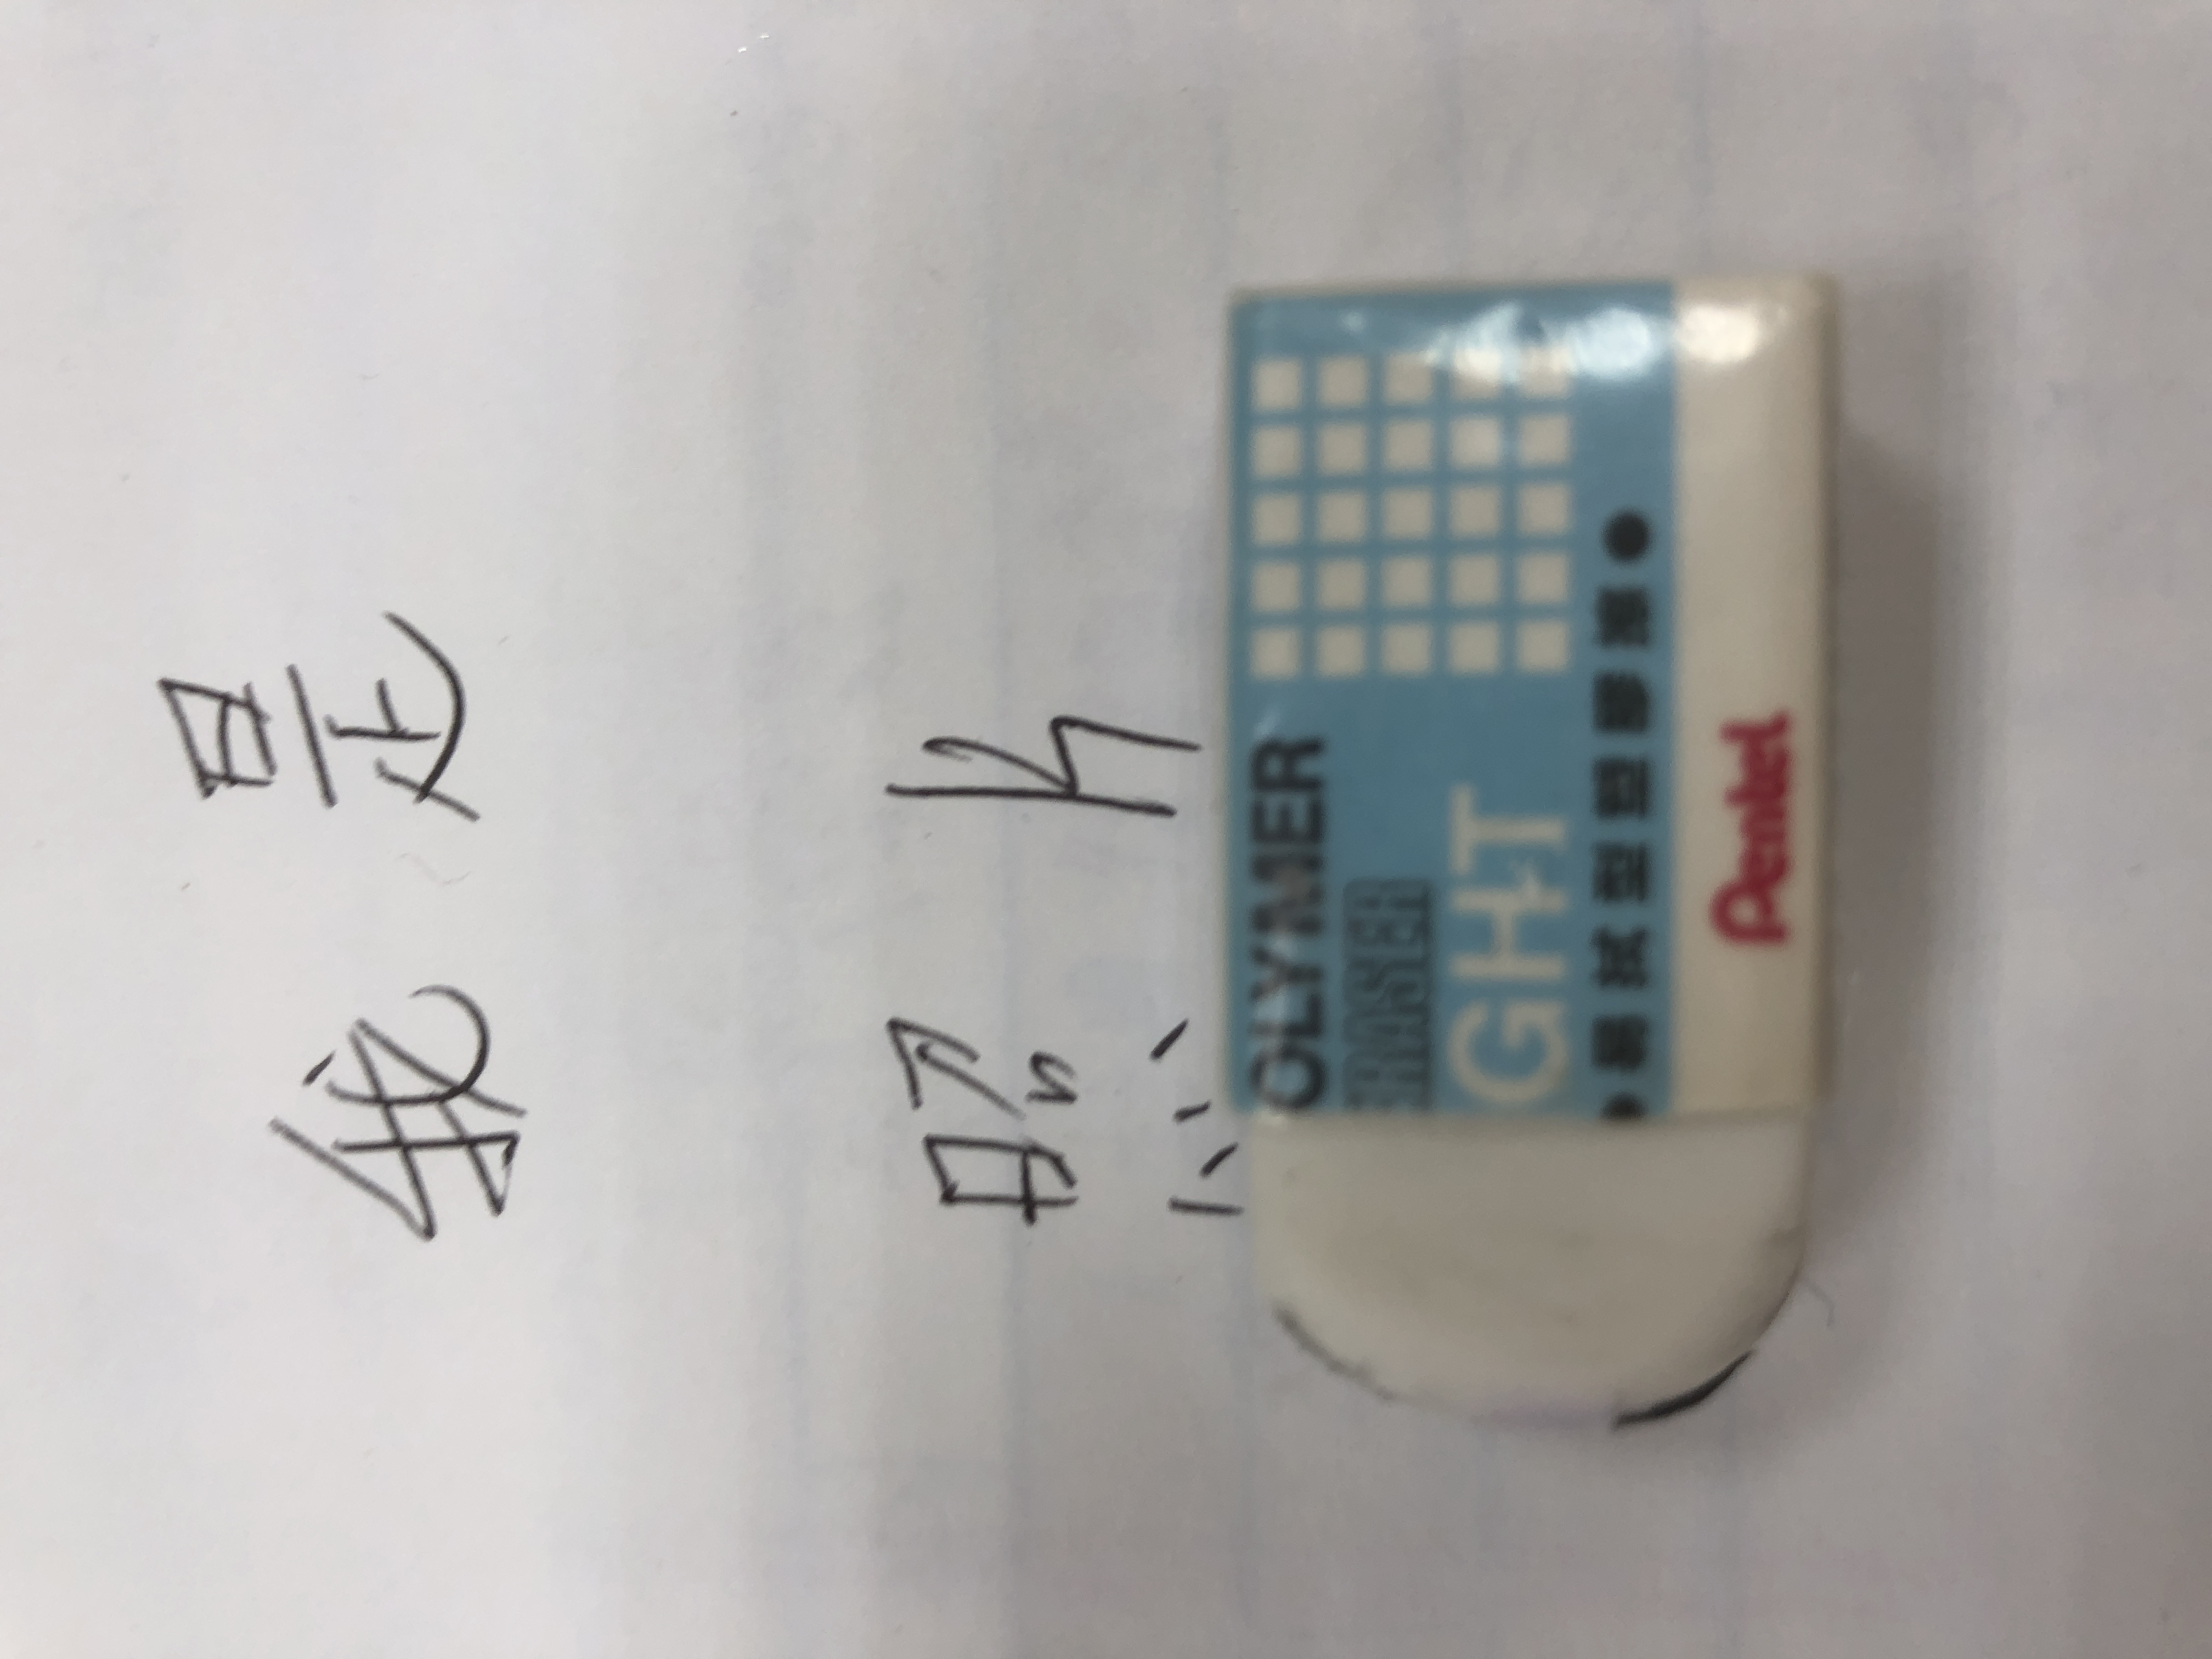 我是
照片
OLYMER
ERASER
GHT
Pentel